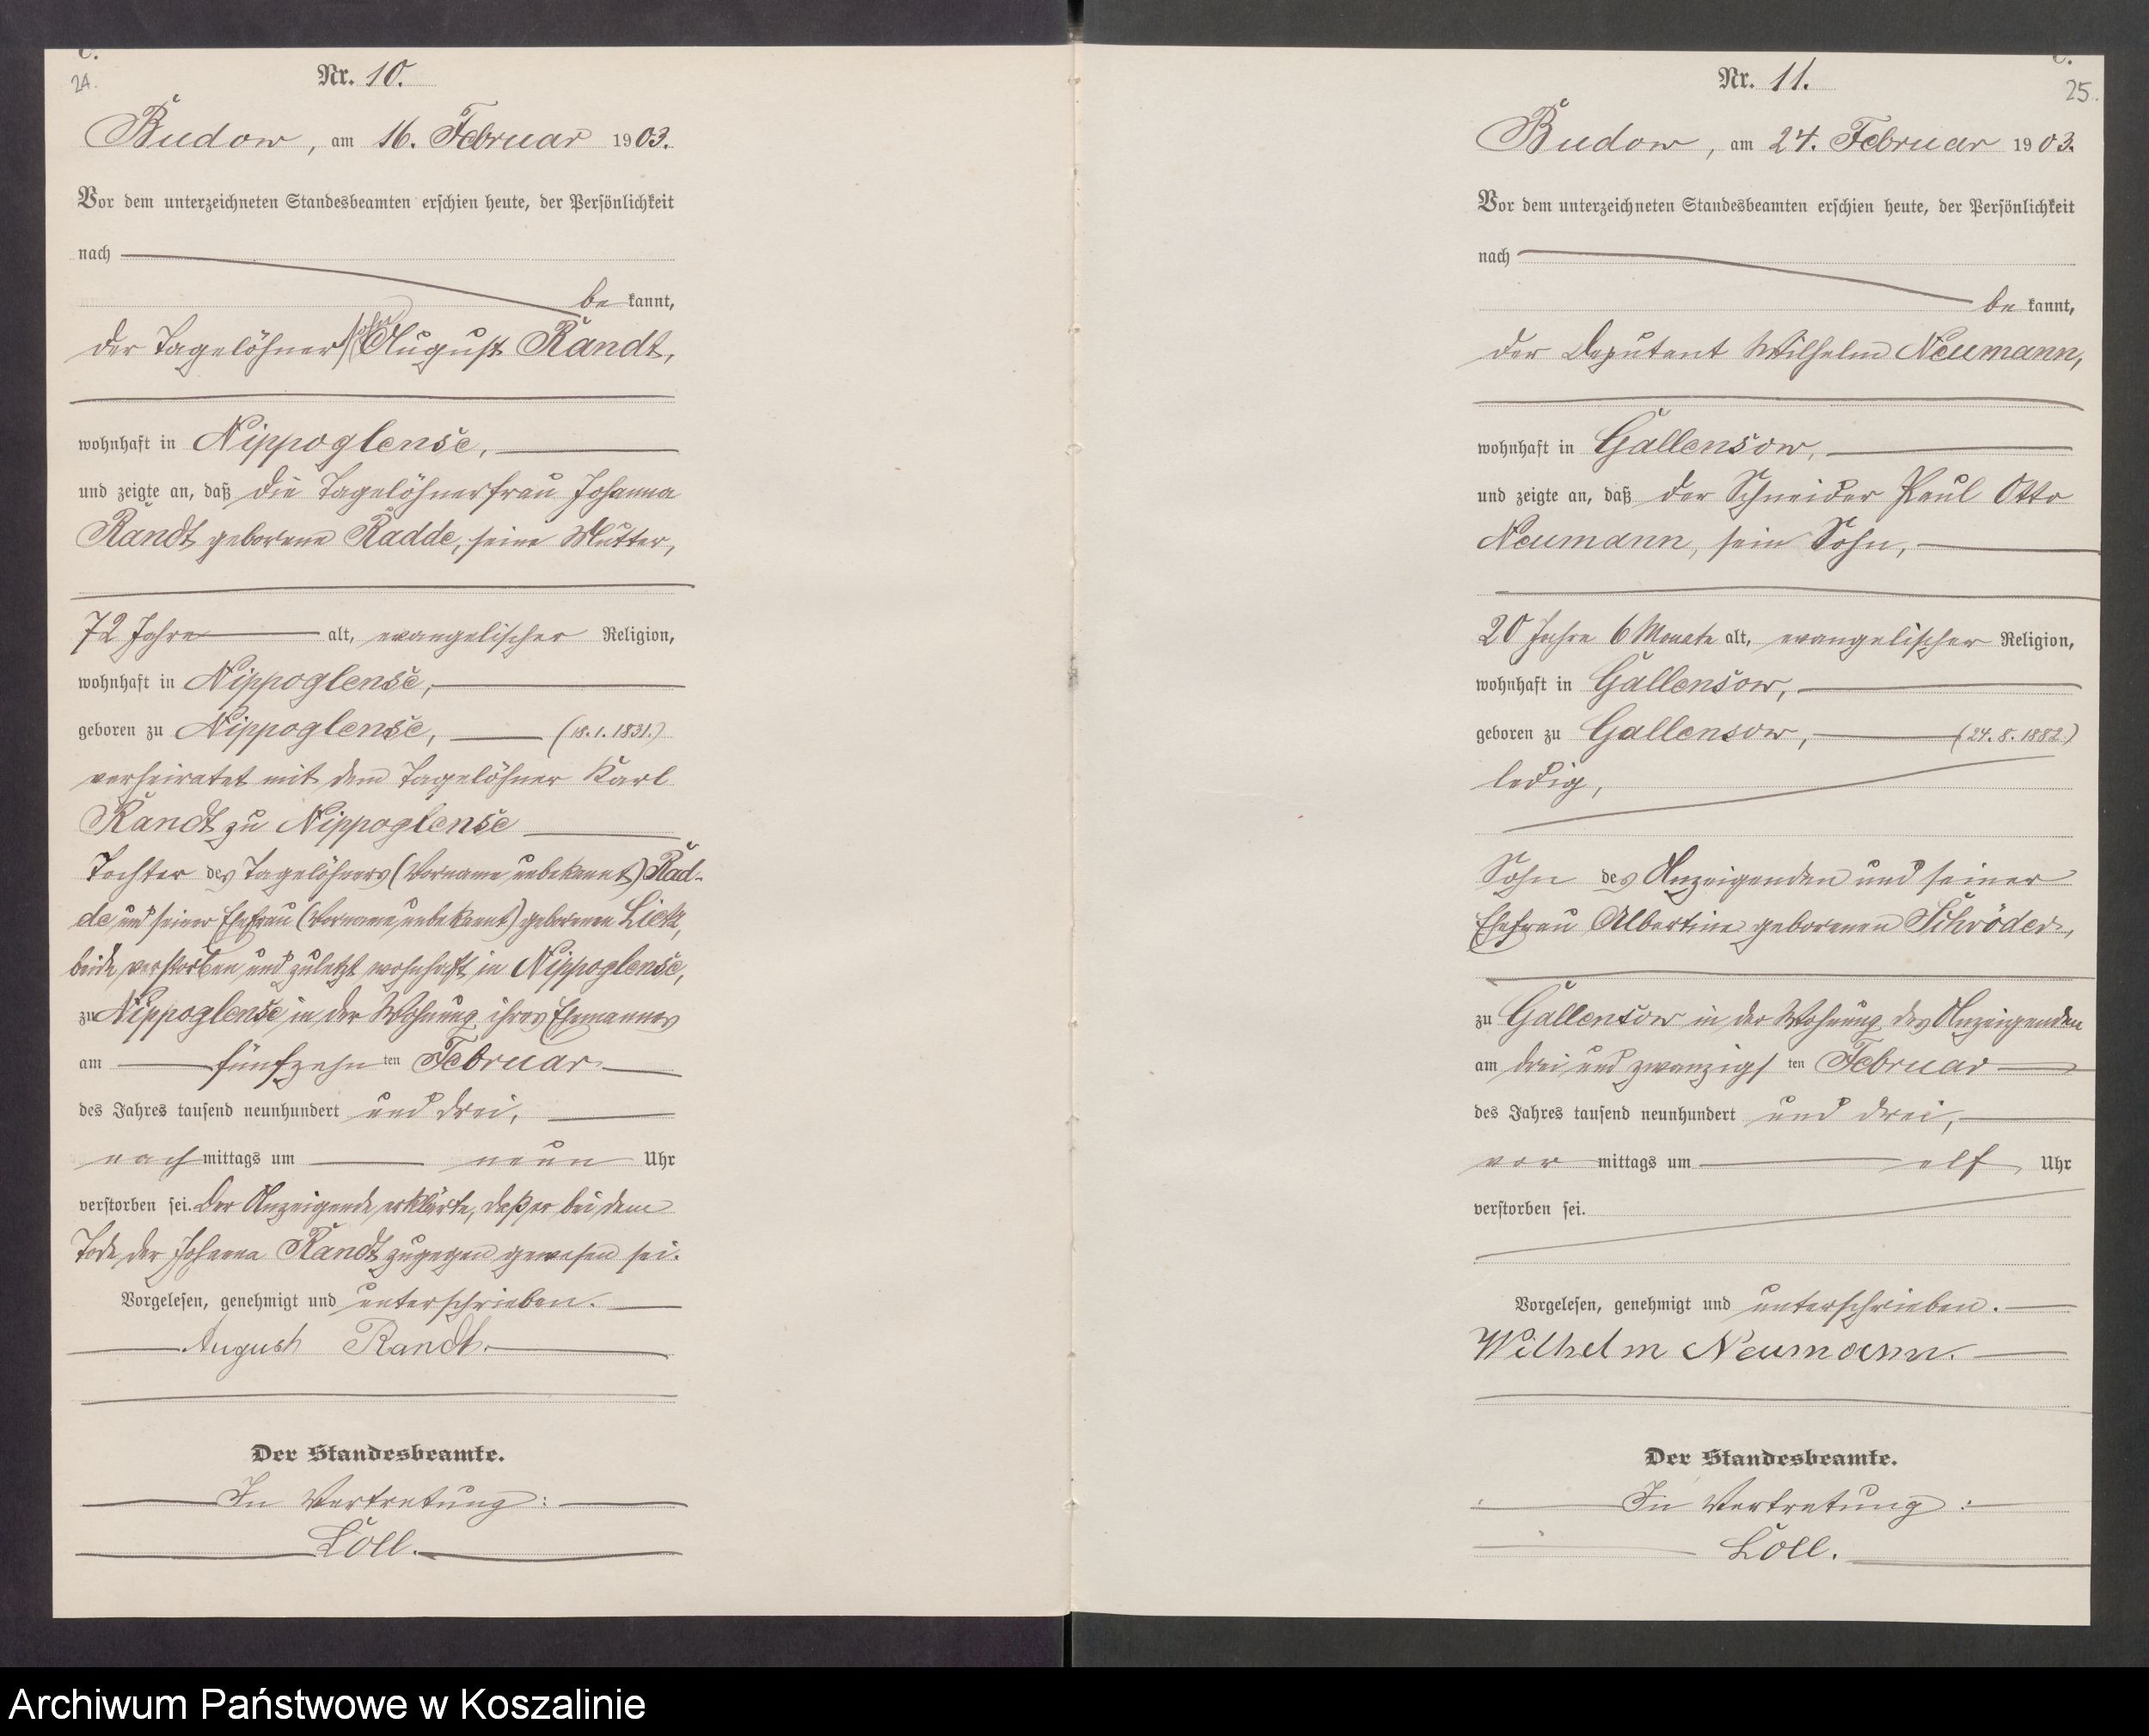 C.
24.
Nr. 10.
Budow, am 16. Februar 1903.
Vor dem unterzeichneten Standesbeamten erschien heute, der Persönlichkeit
nach
be kannt,
der Tagelöhner August Randt,
wohnhaft in Nippoglense,
und zeigte an, daß die Tagelöhnerfrau Johanna
Randt geborene Radde, seine Mutter,
72 Jahre alt, evangelischer Religion,
wohnhaft in Nippoglense,
geboren zu Nippoglense, (18.1.1831.)
verheiratet mit dem Tagelöhner Karl
Randt zu Nippoglense
Tochter des Tagelöhners (Vorname unbekannt) Rad-
de und seiner Ehefrau (Vorname unbekannt) geborenen
beide verstorben und zuletzt wohnhaft in Nippoglense,
zu Nippoglense in der Wohnung ihres Ehemannes
am fünfzehn ten Februar
des Jahres tausend neunhundert und drei,
nach mittags um neun Uhr
verstorben sei. Der Anzeigende erklärte, daß er bei dem
Tode der Johanna Randt zugegen gewesen sei.
Vorgelesen, genehmigt und unterschrieben.
August Randt.
Der Standesbeamte.
In Vertretung:
Löll.
C.
25.
Nr. 11.
Budow, am 24. Februar 1903.
Vor dem unterzeichneten Standesbeamten erschien heute, der Persönlichkeit
nach
be kannt,
der Deputant Wilhelm Neumann,
wohnhaft in Gallensow,
und zeigte an, daß der Schneider Paul Otto
Neumann, sein Sohn,
20 Jahre 6 Monate alt, evangelischer Religion,
wohnhaft in Gallensow,
geboren zu Gallensow, (24.8.1882)
ledig,
Sohn des Anzeigenden und seiner
Ehefrau Albertine geborenen Schröder,
zu Gallensow in der Wohnung des Anzeigenden
am drei und zwanzigs ten Februar
des Jahres tausend neunhundert und drei,
vor mittags um elf Uhr
verstorben sei.
Vorgelesen, genehmigt und unterschrieben.
Wilhelm Neumann.
Der Standesbeamte.
In Vertretung:
Löll.
Archiwum Państwowe w Koszalinie